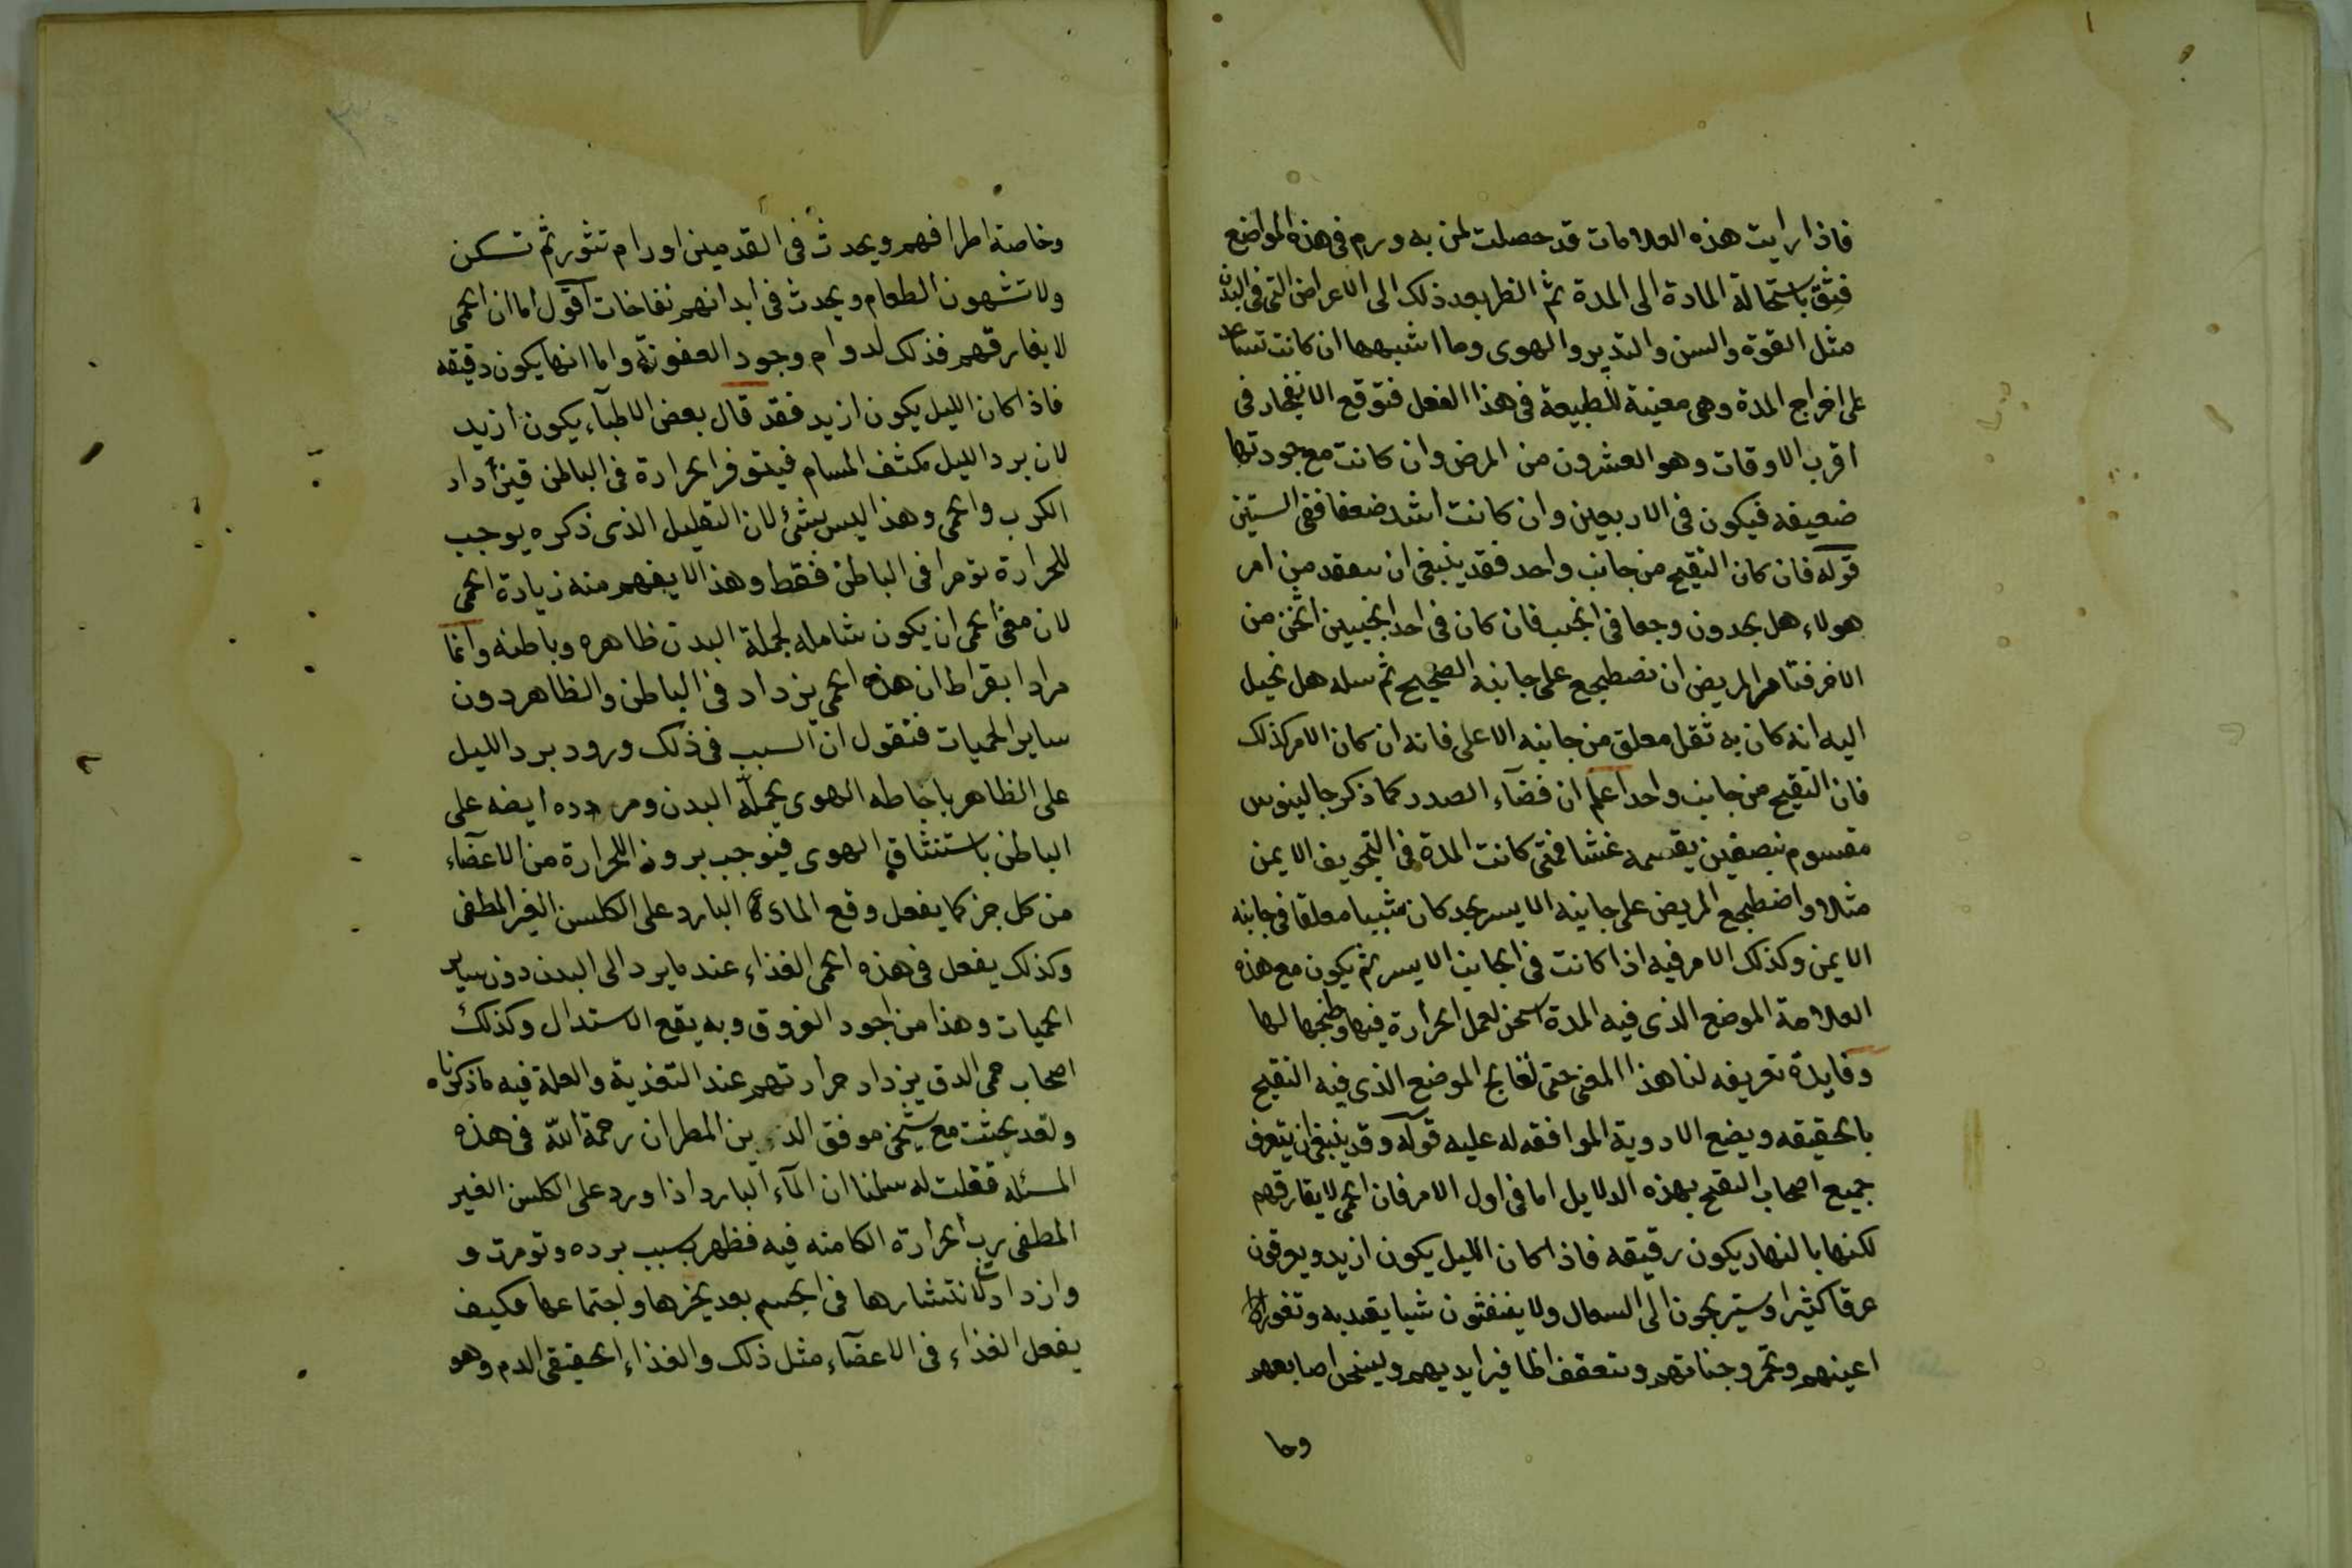 فاذا رايت هذه العلامات قد حصلت لمن به ورم فى هذه المواضع
فثق باستحالة المادة الى المدة ثم انظر بعد ذلك الى الاعراض التى فى البدن
مثل القوة والسن والتدبير والهوى وما اشبهها ان كانت تساعد
على اخراج المدة وهى معينة للطبيعة فى هذا الفعل فتوقع الانفجار فى
اقرب الاوقات وهو العشرون من المرض وان كانت مع جودتها
ضعيفه فيكون فى الاربعين وان كانت اشد ضعفا ففى الستين
قوله فان كان التقيح من جانب واحد فقد ينبغى ان يتفقد من امر
هولاء هل يجدون وجعا فى الجنب فان كان فى احد الجنبين اسخن من
الاخر فتامر المريض ان يضطجع على جانبه الصحيح ثم سله هل يخيل
اليه انه كان به ثقل معلق من جانبه الاعلى فانه ان كان الامر كذلك
فان التقيح من جانب واحد اعلم ان فضآء الصدر كما ذكر جالينوس
مقسوم بنصفين يقسمه غشا فمتى كانت المدة فى التجويف الايمن
مثلا واضطجع المريض على جانبه الايسر يجد كان شيا معلقا فى جانبه
الايمن وكذلك الامر فيه اذا كانت فى الجانب الايسر ثم يكون مع هذه
العلامة الموضع الذى فيه المدة اسخن لعمل الحرارة فيها وطبخها لها
وفايدة تعريفه لنا هذا المعنى حتى نعالج الموضع الذى فيه التقيح
بالحقيقه ويضع الادوية الموافقه له عليه قوله وقد ينبغى ان يتعرف
جميع اصحاب التقيح بهذه الدلايل اما فى اول الامر فان الحمى لا يفارقهم
لكنها بالنهار يكون رقيقه فاذا كان الليل يكون ازيد ويعرقون
عرقا كثيرا ويستريحون الى السعال ولا ينفثون شيا يعتد به وتغور
اعينهم وتحمر وجناتهم وتتعقف اظافير ايديهم وليسخن اصابعهم
وخا
وخاصة اطرافهم ويحدث فى القدمين اورام تثور ثم تسكن
ولا تشهون الطعام ويحدث فى ابدانهم نفاخات اقول اما ان الحمى
لا يفارقهم فذلك لدوام وجود العفونة واما انها يكون دقيقه
فاذا كان الليل يكون ازيد فقد قال بعض الاطبآء يكون ازيد
لان برد الليل مكثف المسام فيتوفر الحرارة فى الباطن فيزداد
الكرب والحمى وهذا ليس بشئ لان التعليل الذى ذكره يوجب
للحرارة توفرا فى الباطن فقط وهذا لا يفهم منه زيادة الحمى
لان معنى الحمى ان يكون شامله لجملة البدن ظاهره وباطنه وانما
مراد ابقراط ان هذه الحمى يزداد فى الباطن والظاهر دون
ساير الحميات فنقول ان السبب فى ذلك ورود برد الليل
على الظاهر باحاطه الهوى بجملة البدن ومروده ايضه على
الباطن باستنشاق الهوى فيوجب بروز الحرارة من الاعضآء
من كل جز كما يفعل وقع المآء البارد على الكلس الغير المطفى
وكذلك يفعل فى هذه الحمى الغذاء عند ما يرد الى البدن دون ساير
الحميات وهذا من اجود الفروق وبه يقع الاستدلال وكذلك
اصحاب حمى الدق يزداد حرارتهم عند التغذية والعلة فيه ما ذكرناه
ولقد بحثت مع شيخى موفق الدين بن المطران رحمة الله فى هذه
المسئله فقلت له سلمنا ان المآء البارد اذا ورد على الكلس الغير
المطفى يرب الحرارة الكامنه فيه فظهر بسبب برده وتوفرت و
وازدادت لانتشارها فى الجسم بعد تحيزها واجتماعها فكيف
يفعل الغذاء فى الاعضآء مثل ذلك والغذاء الحقيقى الدم وهو